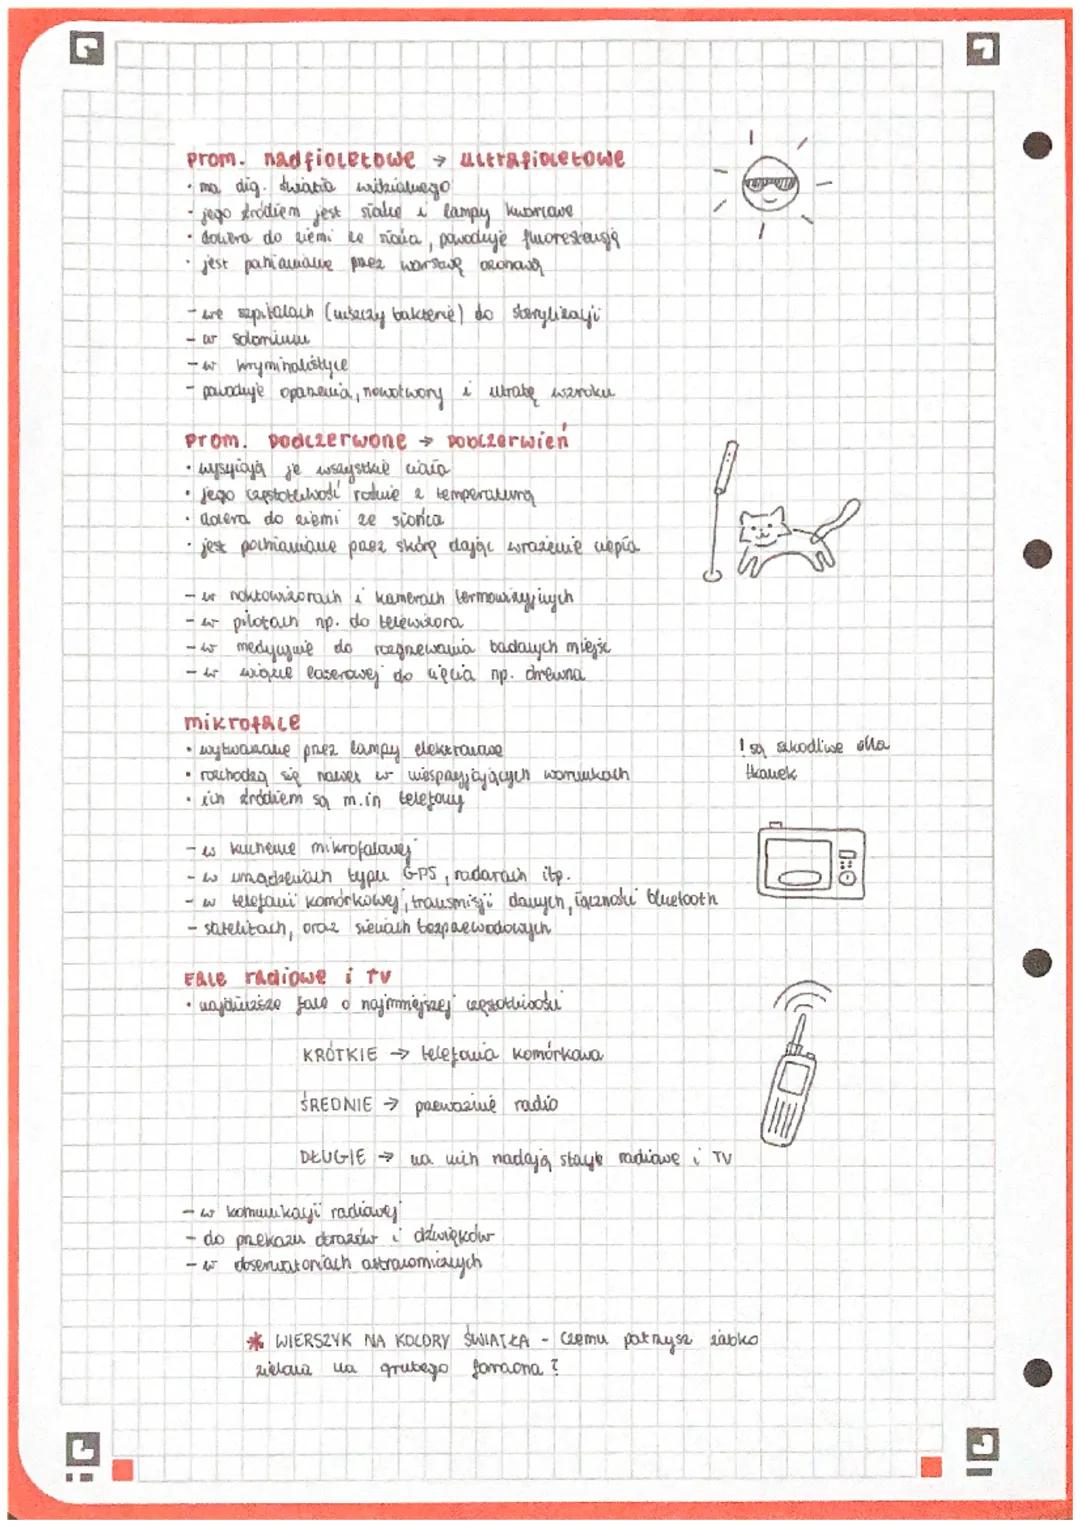 prom. nadfioletowe → ultrafioletowe
• ma dłg. światła widzialnego
• jego źródłem jest słońce i lampy kwarcowe
• dociera do ziemi ze słońca, powoduje fluorescencję
• jest pochłaniane przez warstwę ozonową
- we szpitalach (niszczy bakterie) do sterylizacji
- w solarium
- w kryminalistyce
- powoduje oparzenia, nowotwory i utratę wzroku
prom. podczerwone → podczerwień
• wysyłają je wszystkie ciała
• jego częstotliwość rośnie z temperaturą
• dociera do ziemi ze słońca
• jest pochłaniane przez skórę dając wrażenie ciepła
- w noktowizorach i kamerach termowizyjnych
- w pilotach np. do telewizora
- w medycynie do rozgrzewania badanych miejsc
- w wiązce laserowej do cięcia np. drewna
mikrofale
• wytwarzane przez lampy elektronowe
• rozchodzą się nawet w niesprzyjających warunkach
• ich źródłem są m.in telefony
! są szkodliwe dla
tkanek
- w kuchence mikrofalowej
- w urządzeniach typu GPS, radarach itp.
- w telefonii komórkowej, transmisji danych, łączności bluetooth
- satelitach, oraz sieciach bezprzewodowych
Fale radiowe i TV
• najdłuższe fale o najmniejszej częstotliwości
KRÓTKIE → telefonia komórkowa
ŚREDNIE → przeważnie radio
DŁUGIE → na nich nadają stacje radiowe i TV
- w komunikacji radiowej
- do przekazu obrazów i dźwięków
- w obserwatoriach astronomicznych
* WIERSZYK NA KOLORY ŚWIATŁA - czemu patrzysz żabko
zielona na grubego faraona?